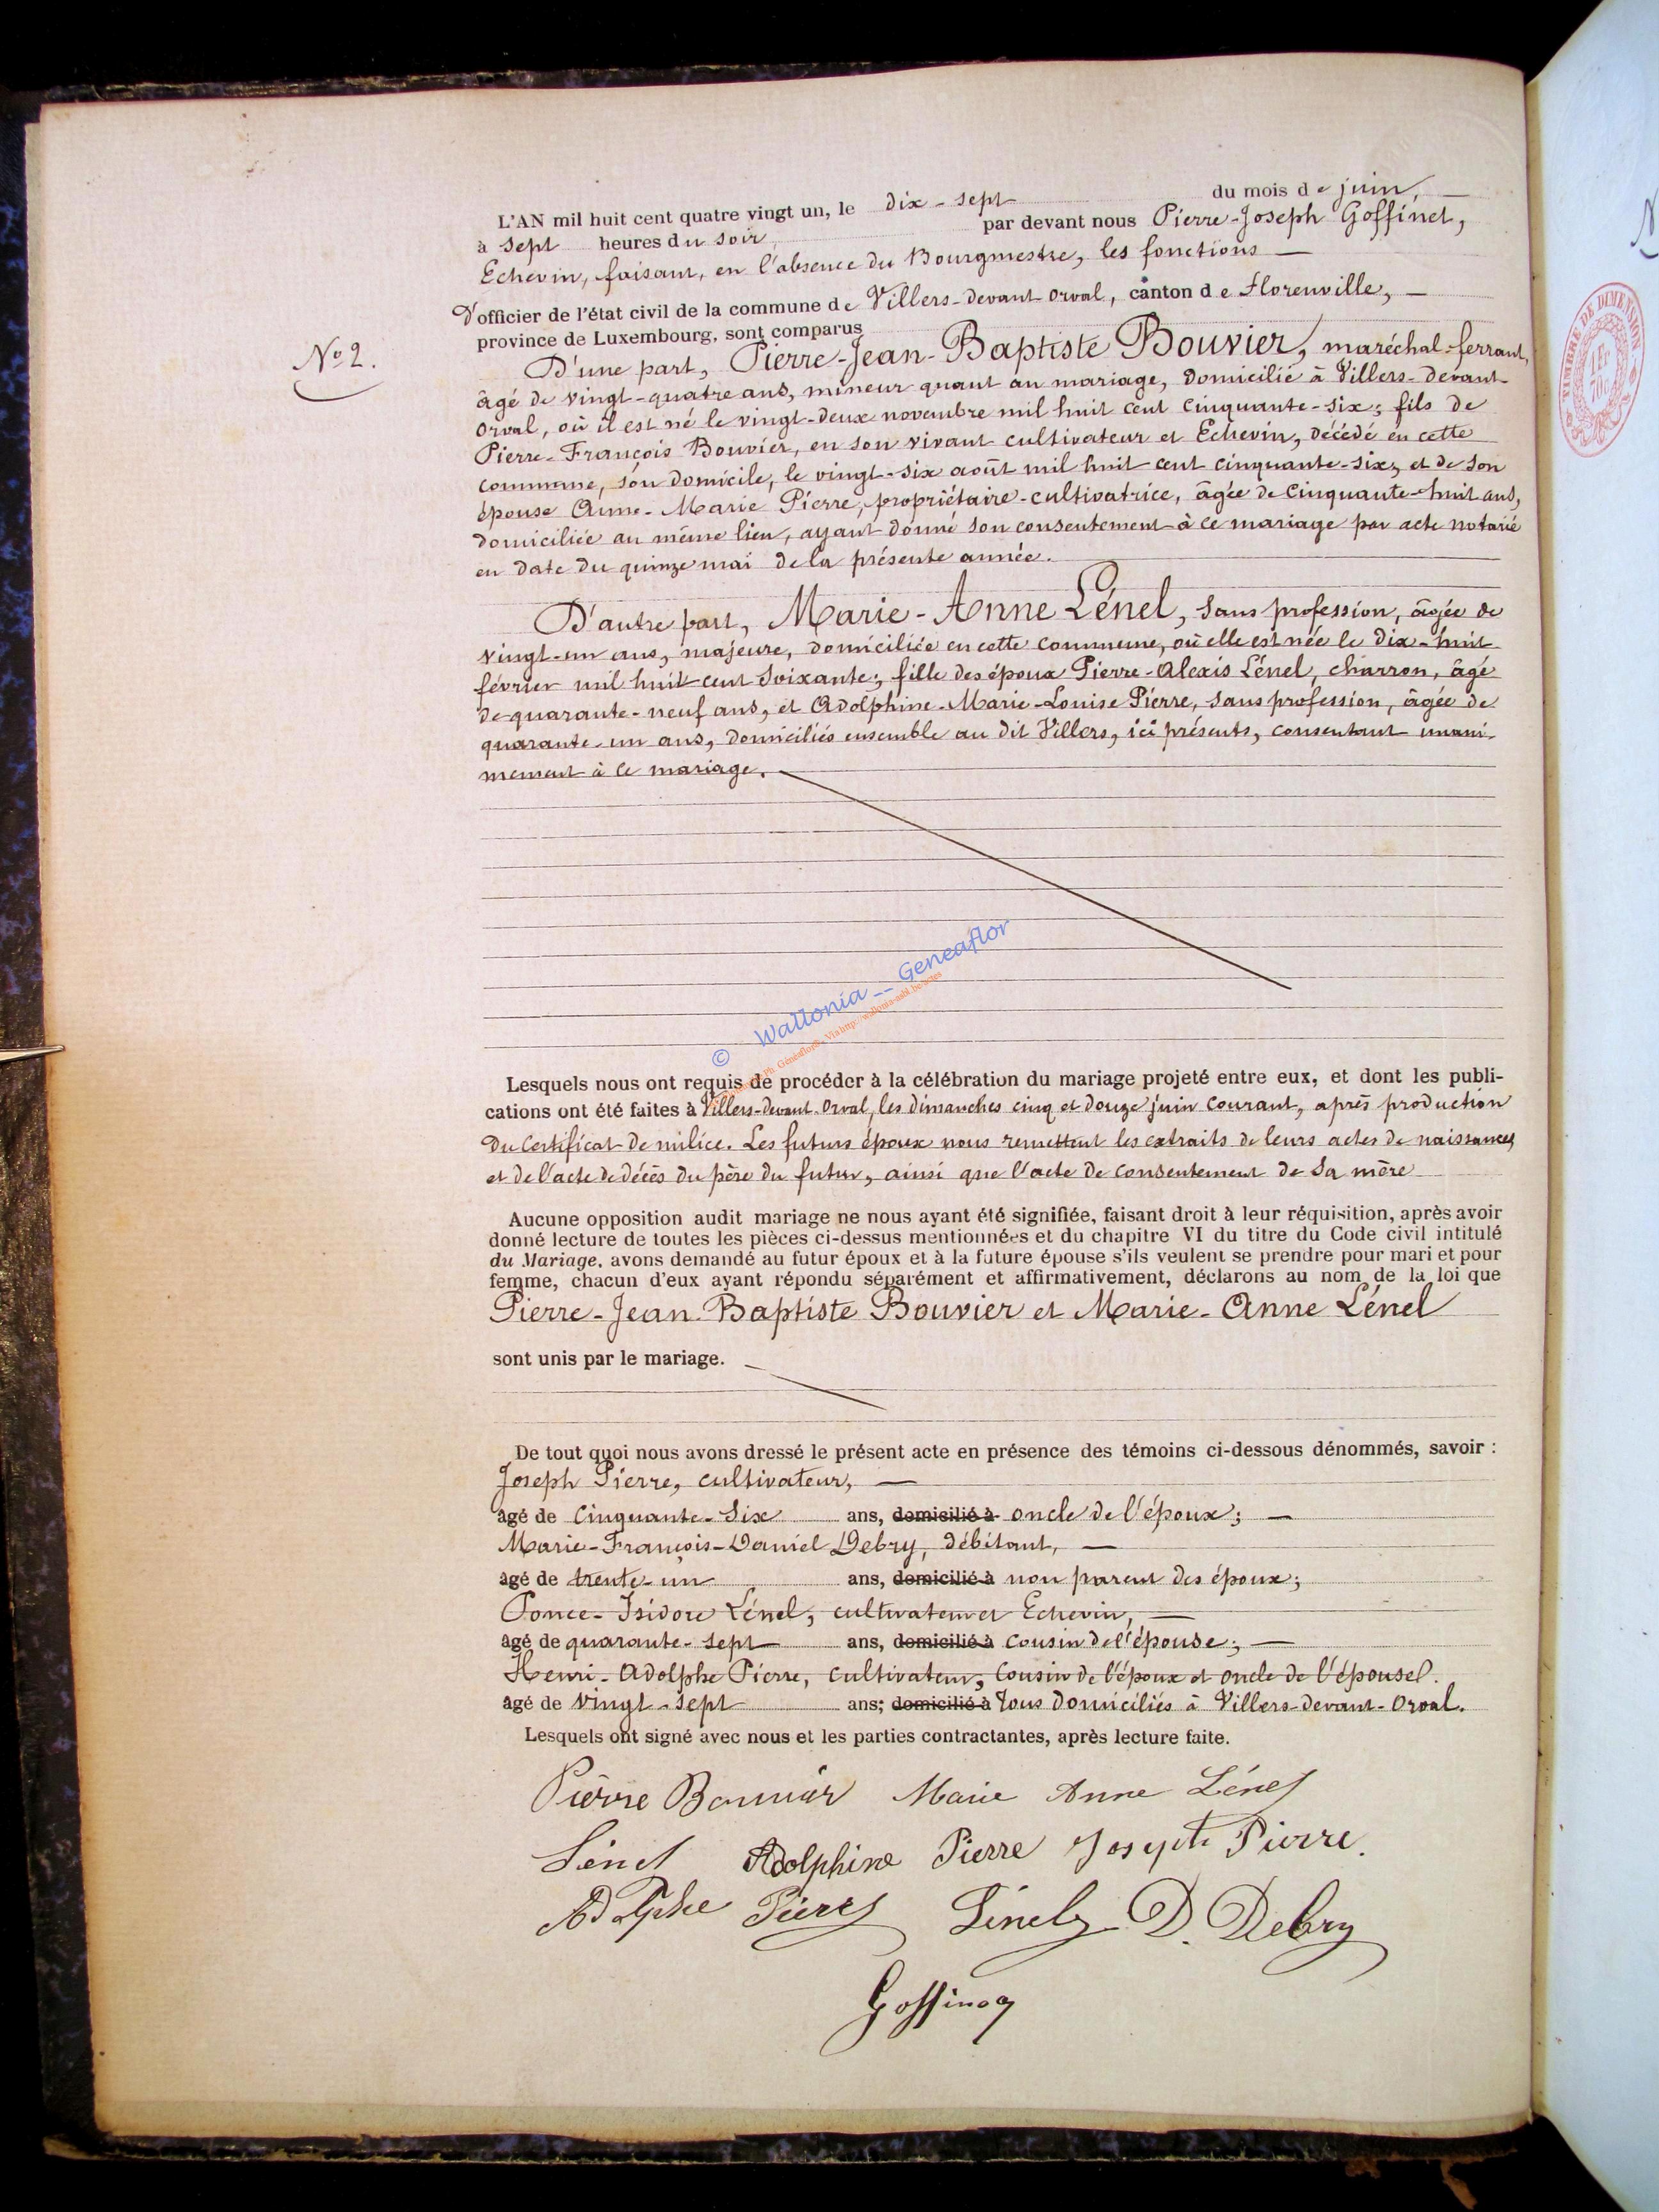 L'AN mil huit cent quatre vingt un, le dix-sept du mois de juin,
à sept heures du soir, par devant nous Pierre-Joseph Goffinet,
Echevin, faisant, en l'absence du Bourgmestre, les fonctions
d'officier de l'état civil de la commune de Villers-devant-Orval, canton de Florenville,
province de Luxembourg, sont comparus
N° 2.
D'une part, Pierre-Jean-Baptiste Bouvier, maréchal-ferrant,
âgé de vingt-quatre ans, mineur quant au mariage, domicilié à Villers-devant-
Orval, où il est né le vingt-deux novembre mil huit cent cinquante-six; fils de
Pierre-François Bouvier, en son vivant cultivateur et Echevin, décédé en cette
commune, son domicile, le vingt-six août mil huit cent cinquante-six, et de son
épouse Anne-Marie Pierre, propriétaire-cultivatrice, âgée de cinquante-huit ans,
domiciliée au même lieu, ayant donné son consentement à ce mariage par acte notarié
en date du quinze mai de la présente année.
D'autre part, Marie-Anne Lénel, sans profession, âgée de
vingt-un ans, majeure, domiciliée en cette commune, où elle est née le dix-huit
février mil huit cent soixante; fille des époux Pierre-Alexis Lénel, charron, âgé
de quarante-neuf ans, et Adolphine-Marie-Louise Pierre, sans profession, âgée de
quarante-un ans, domiciliés ensemble au dit Villers, ici présents, consentant unani-
mement à ce mariage.
© Wallonia __ Geneaflor
Lesquels nous ont requis de procéder à la célébration du mariage projeté entre eux, et dont les publi-
cations ont été faites à Villers-devant-Orval, les dimanches cinq et douze juin courant, après production
du certificat de milice. Les futurs époux nous remettent les extraits de leurs actes de naissances
et de l'acte de décès du père du futur, ainsi que l'acte de consentement de sa mère
Aucune opposition audit mariage ne nous ayant été signifiée, faisant droit à leur réquisition, après avoir
donné lecture de toutes les pièces ci-dessus mentionnées et du chapitre VI du titre du Code civil intitulé
du Mariage, avons demandé au futur époux et à la future épouse s'ils veulent se prendre pour mari et pour
femme, chacun d'eux ayant répondu séparément et affirmativement, déclarons au nom de la loi que
Pierre-Jean-Baptiste Bouvier et Marie-Anne Lénel
sont unis par le mariage.
De tout quoi nous avons dressé le présent acte en présence des témoins ci-dessous dénommés, savoir :
Joseph Pierre, cultivateur,
âgé de cinquante-six ans, domicilié à oncle de l'époux;
Marie-François-Daniel Debry, débitant,
âgé de trente-un ans, domicilié à non parent des époux;
Ponce-Isidore Lénel, cultivateur et Echevin,
âgé de quarante-sept ans, domicilié à cousin de l'épouse;
Henri-Adolphe Pierre, cultivateur, cousin de l'époux et oncle de l'épouse.
âgé de vingt-sept ans; domicilié à tous domiciliés à Villers-devant-Orval.
Lesquels ont signé avec nous et les parties contractantes, après lecture faite.
Pierre Bouvier Marie Anne Lénel
Lénel Adolphine Pierre Joseph Pierre.
Adolphe Pierre Lénel D. Debry
Goffinet
TIMBRE DE DIMENSION